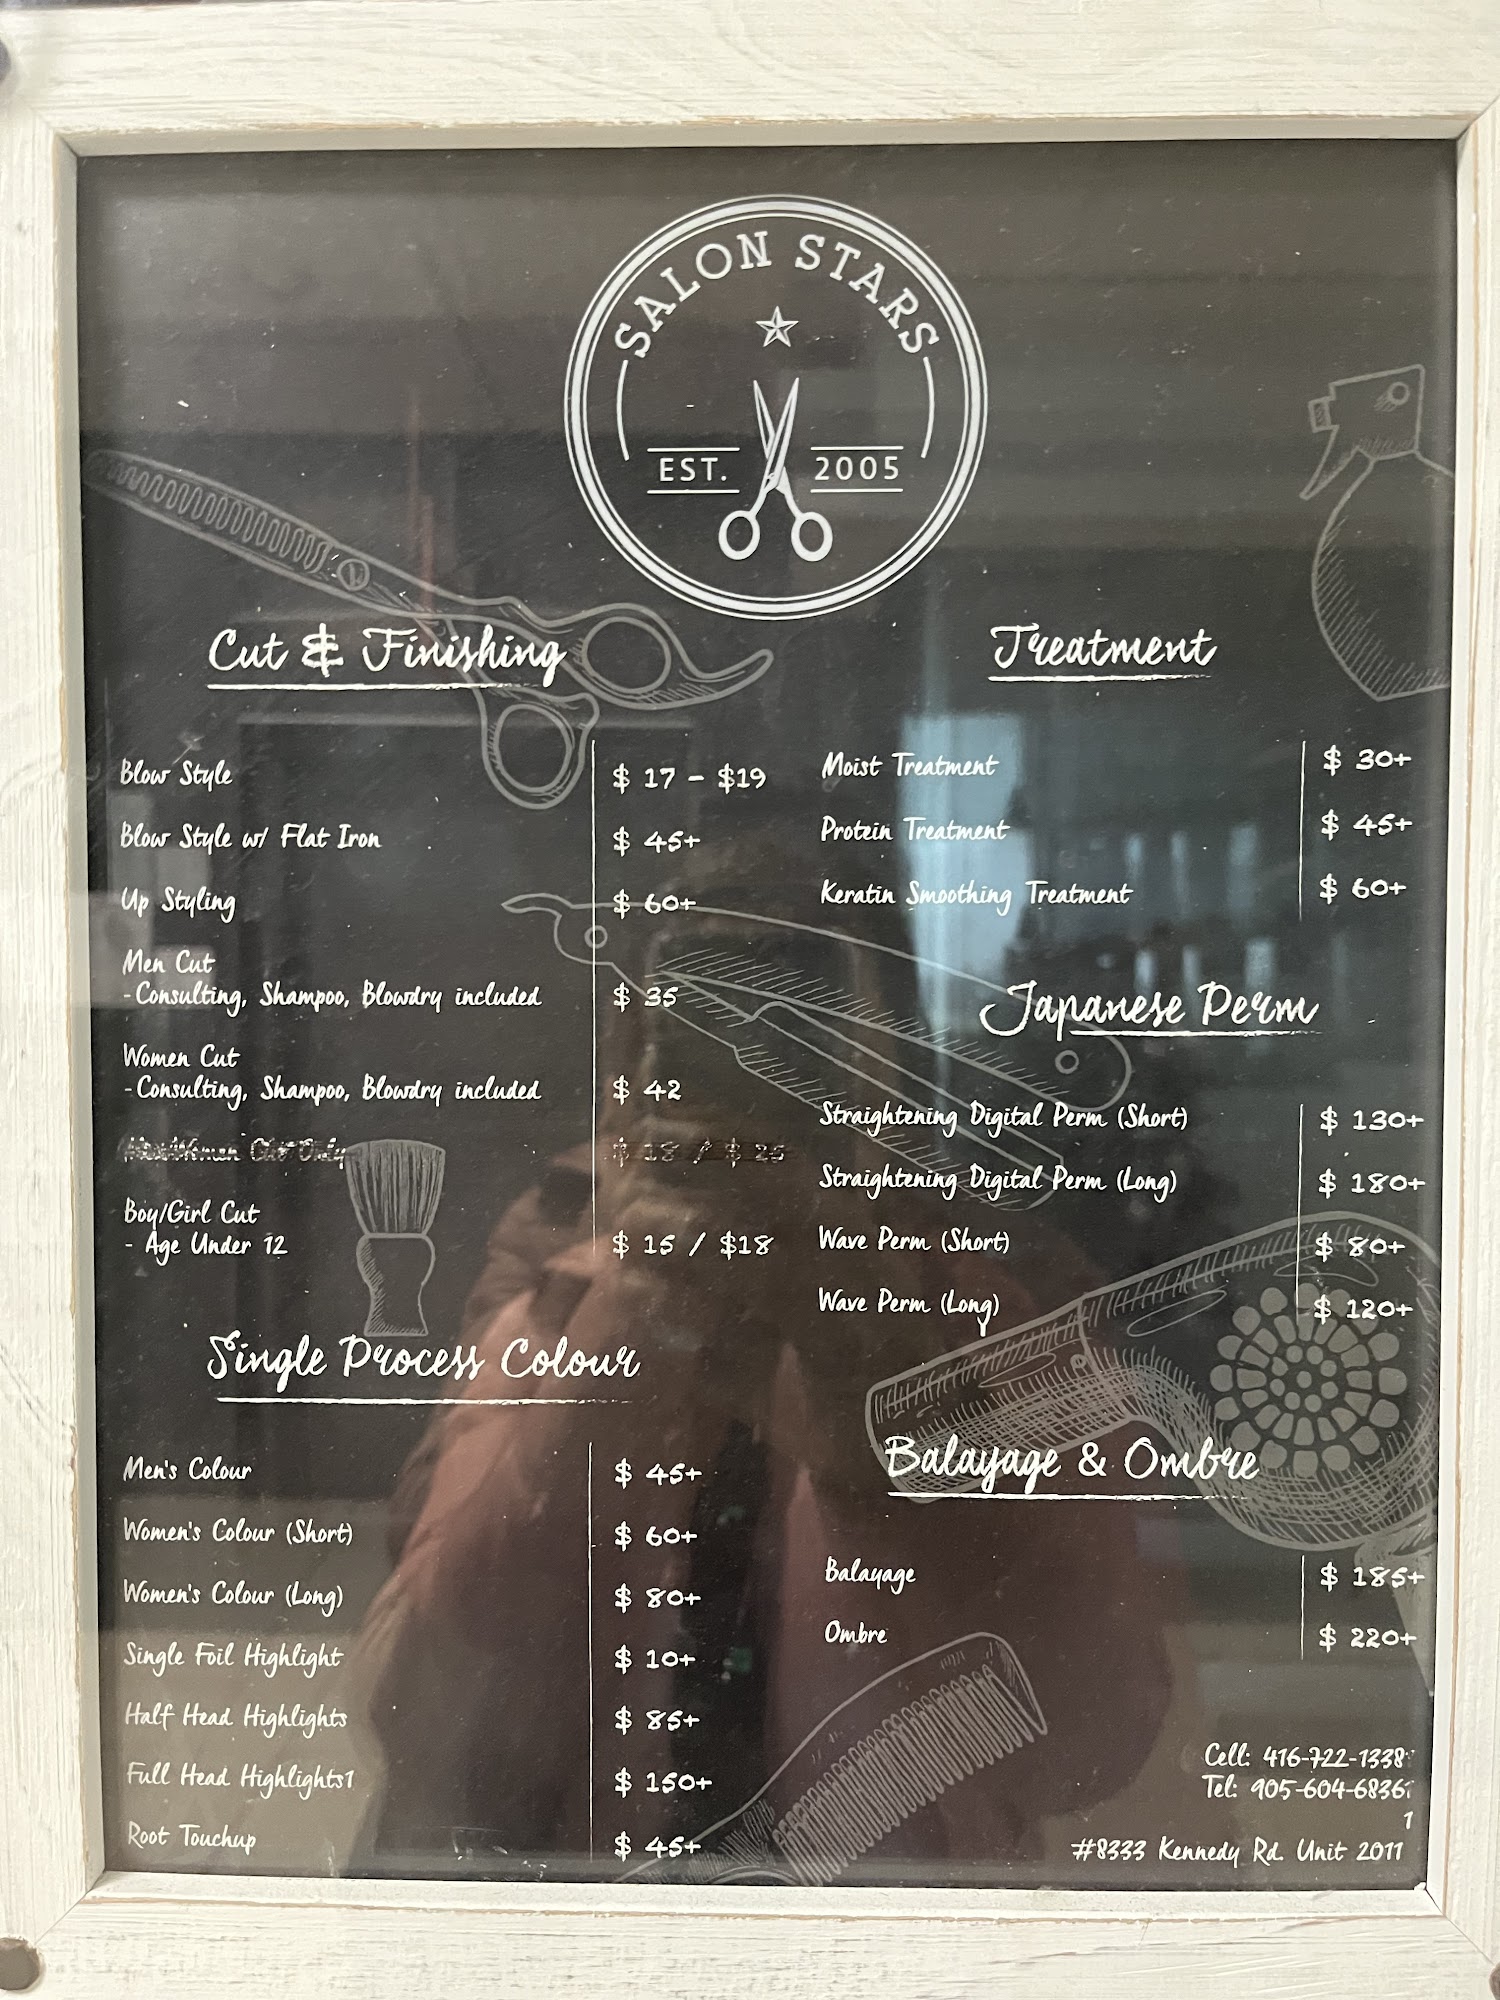 SALON STARS
EST. 2005
Cut & Finishing
Blow Style $ 17 - $19
Blow Style w/ Flat Iron $ 45+
Up Styling $ 60+
Men Cut
- Consulting, Shampoo, Blowdry included $ 35
Women Cut
- Consulting, Shampoo, Blowdry included $ 42
Men/Women Cut Only $ 18 / $ 25
Boy/Girl Cut
- Age Under 12 $ 15 / $18
Single Process Colour
Men's Colour $ 45+
Women's Colour (Short) $ 60+
Women's Colour (Long) $ 80+
Single Foil Highlight $ 10+
Half Head Highlights $ 85+
Full Head Highlights1 $ 150+
Root Touchup $ 45+
Treatment
Moist Treatment $ 30+
Protein Treatment $ 45+
Keratin Smoothing Treatment $ 60+
Japanese Perm
Straightening Digital Perm (Short) $ 130+
Straightening Digital Perm (Long) $ 180+
Wave Perm (Short) $ 80+
Wave Perm (Long) $ 120+
Balayage & Ombre
Balayage $ 185+
Ombre $ 220+
Cell: 416-722-1338
Tel: 905-604-6836
1
#8333 Kennedy Rd. Unit 2011